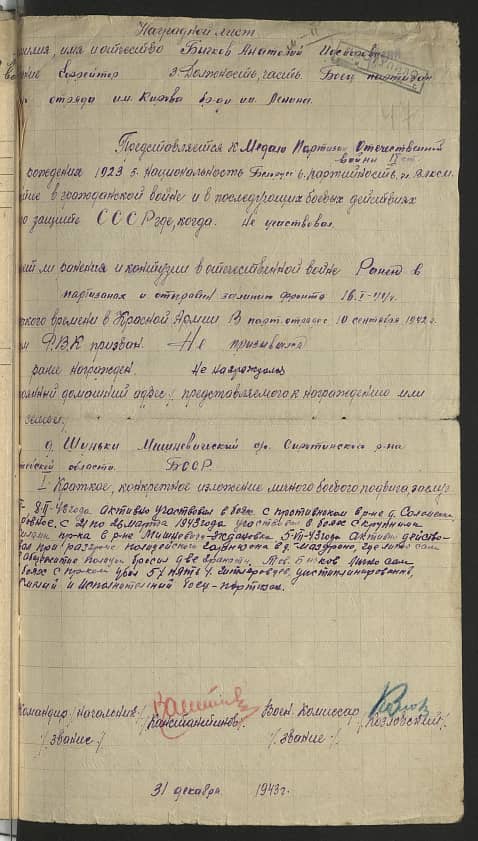 Наградной лист
милия, имя и отчество Бычков Анатолий
ефрейтор 3. Должность, часть Боец партизан
отряда им. Кирова бр-ды им. Ленина.
47
Представляется к Медали Партизан Отечественной
войны II ст.
рождения 1923 5. Национальность Белорус 6. партийность, чл. ВЛКСМ.
тие в гражданской войне и в последующих боевых действиях
по защите СССР где, когда. Не участвовал
ет ли ранения и контузии в отечественной войне Ранен в
партизанах и отправлен за линию фронта 16.
кого времени в Красной Армии В парт. отряде 10 сентября 1942 г.
м Р.В.К призван. Не призывался
ранее награжден Не награждался
оянный домашний адрес представляемого к награждению или
семьи
д. Шиньки Мишневичский с/с. Сиротинского р-на
бской области. БССР.
I Краткое, конкретное изложение личного боевого подвига, заслуг
8-II-43 года Активно участвовал в боях с противником в р-не д.
с 21 по 26 марта 1943 года участвовал в боях с крупными
пр-ка в р-не Мишневичи 5-VII-43 года Активно действо-
вал при разгроме полицейского гарнизона в д. где лично сам
бросил две гранаты. Тов. Бычков лично сам
боях с убил 5/пять/ гитлеровцев, дисциплинированный,
и исполнительный боец-партизан.
Командир /начальник/ /Константинов/ Воен Комиссар /Козловский/
/звание/ /звание/
31 декабря 1943г.